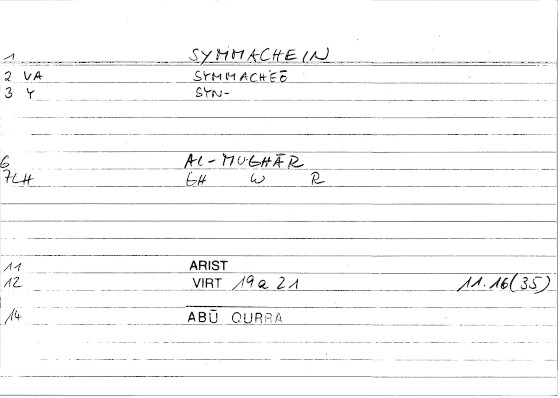 1 SYMMACHEIN
2 VA SYMMACHEŌ
3 Y SYN-
6 AL-MUGHĀR
7LH GH W R
11 ARIST
12 VIRT 19a21 11.16(35)
14 ABŪ QURRA